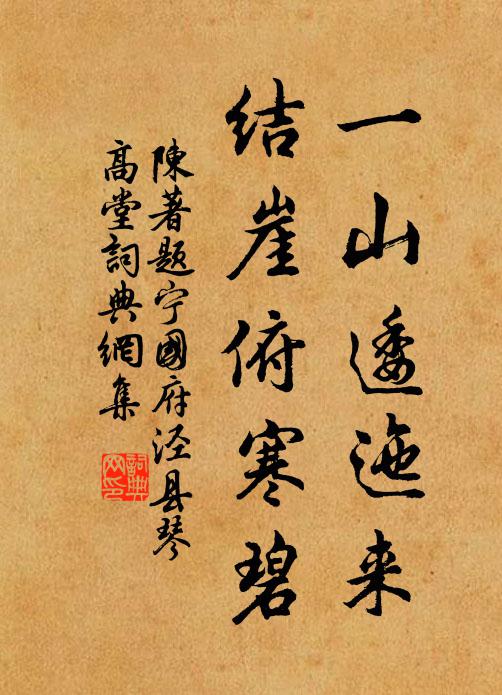 一山逶迤来
结崖俯寒碧
陳著題宁國府泾县琴
高堂詞典網集
詞典网印